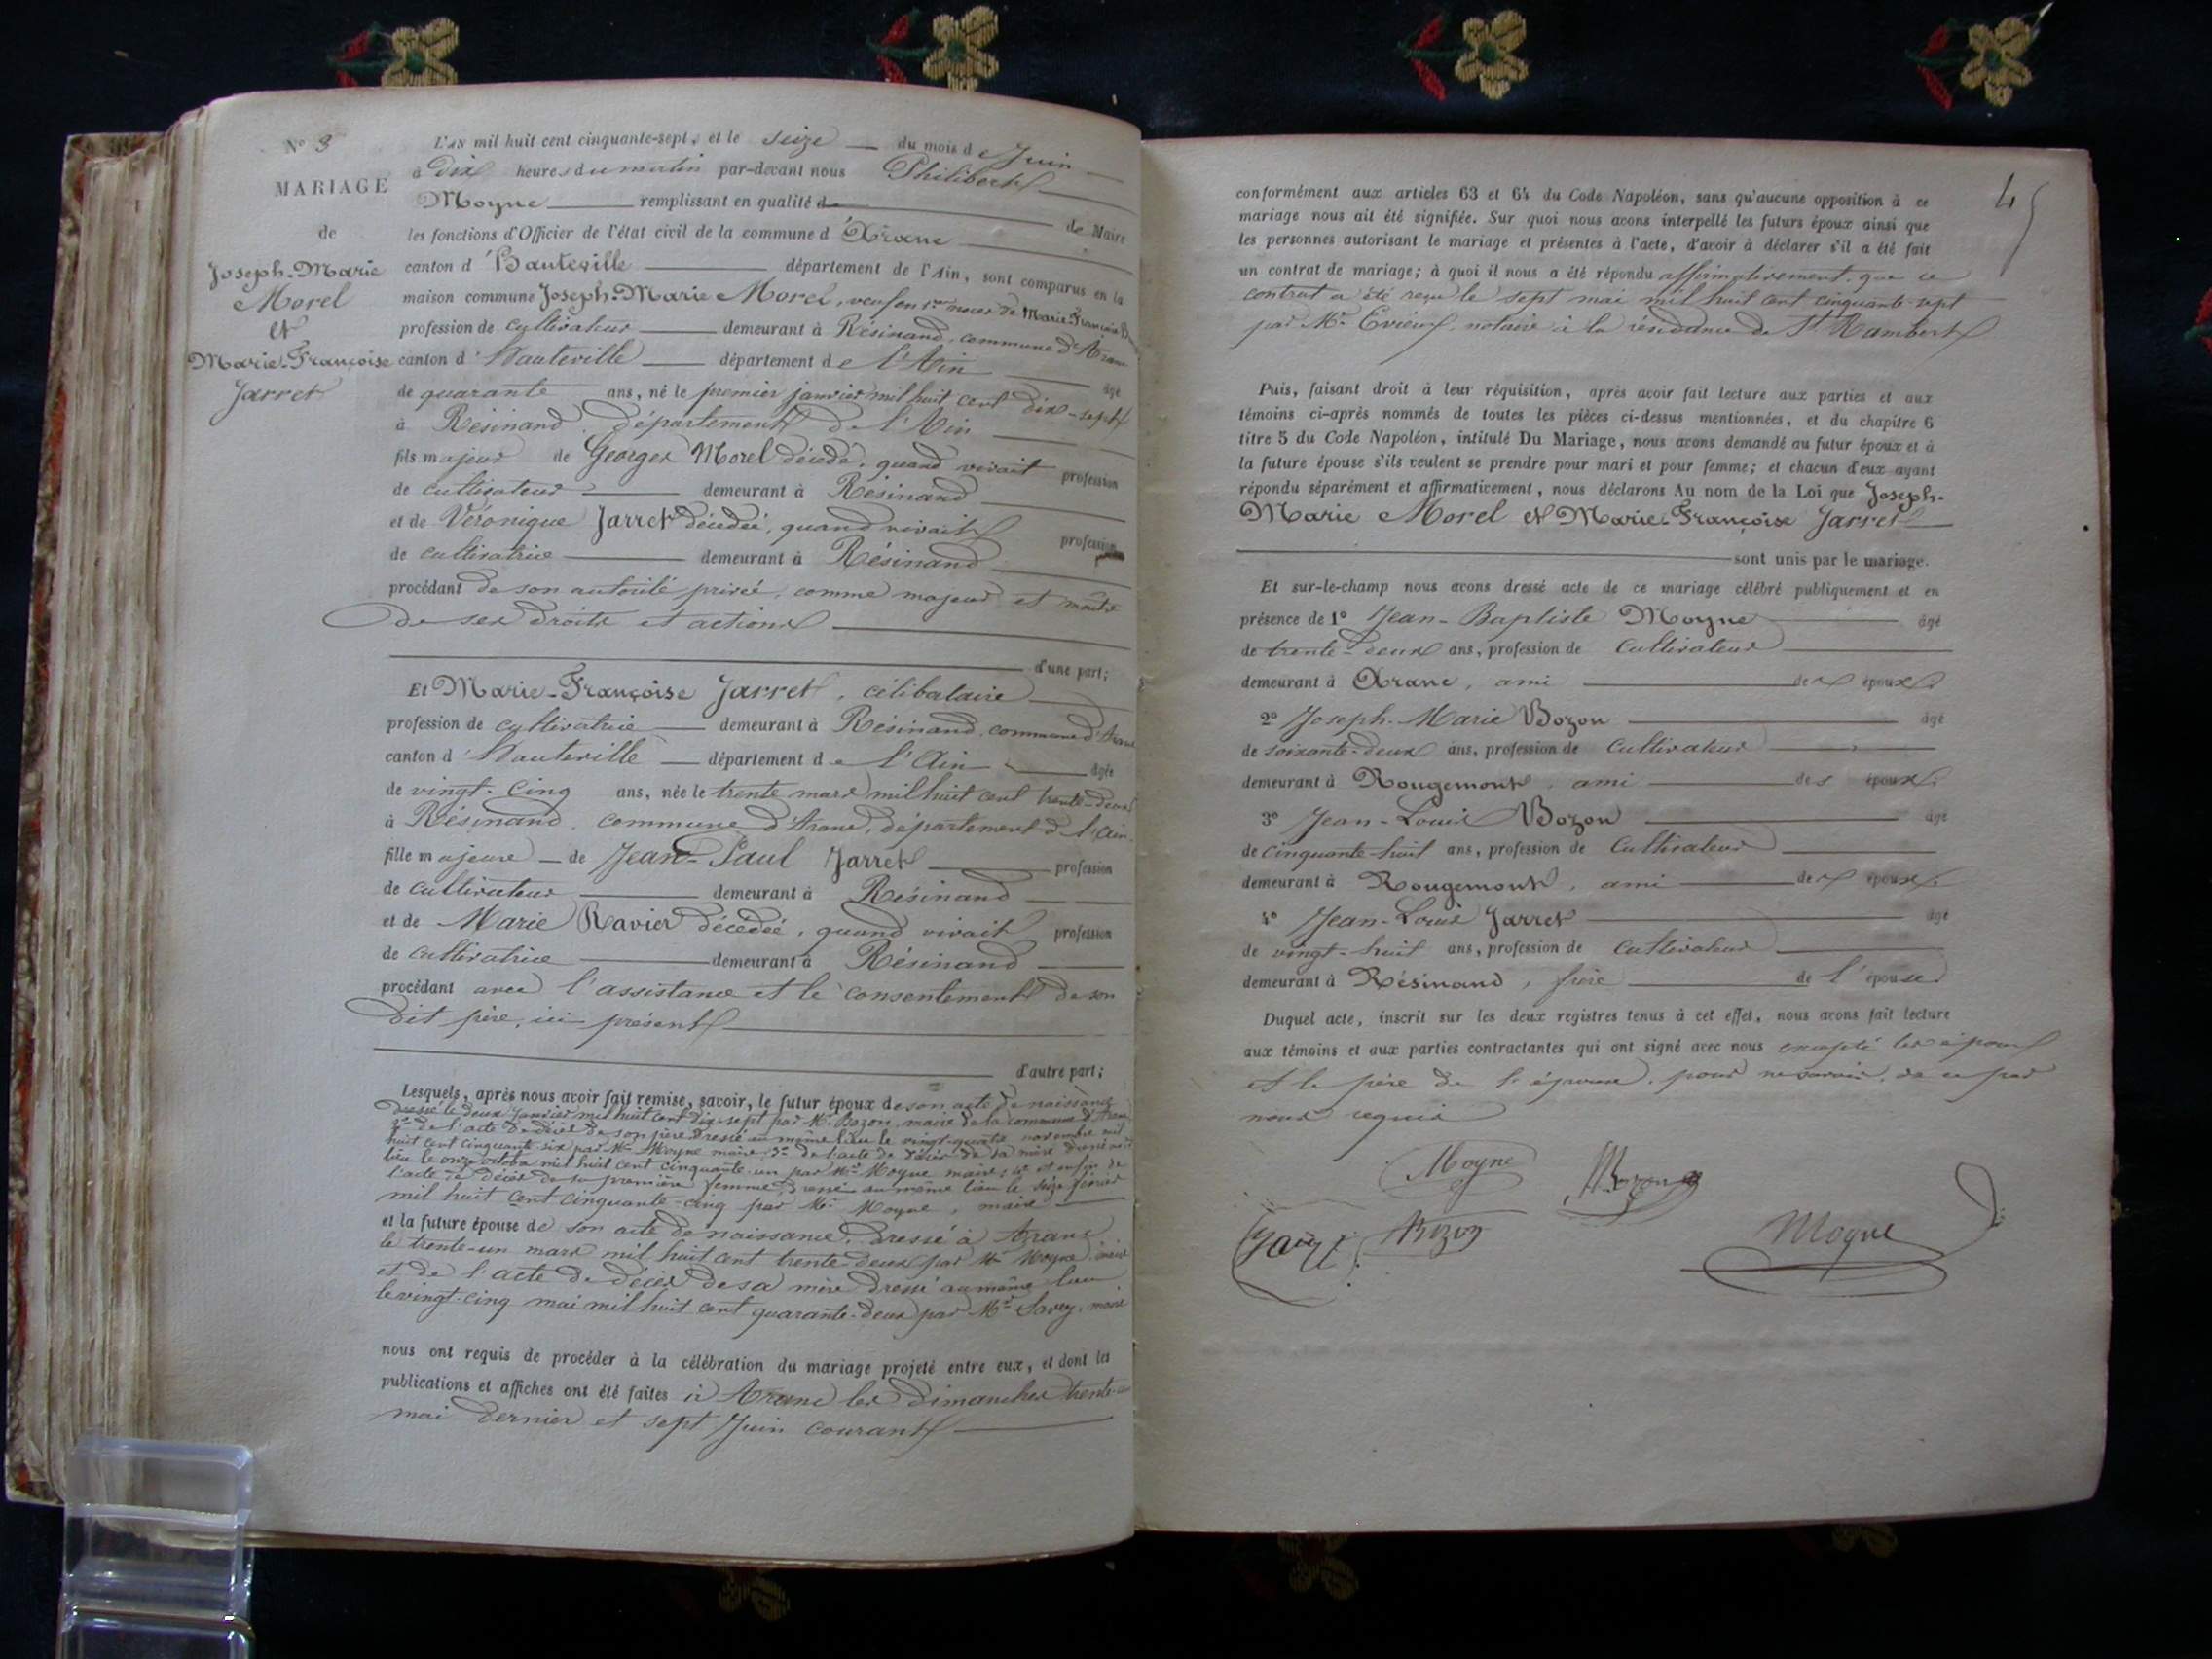 N° 3
MARIAGE
de
Joseph-Marie
Morel
et
Marie-Françoise
Jarret
L'AN mil huit cent cinquante-sept, et le seize du mois de Juin
à Dix heures du matin par-devant nous Philibert
Moyne remplissant en qualité de Maire
les fonctions d'Officier de l'état civil de la commune d'Aranc
canton d'Hauteville département de l'Ain, sont comparus en la
maison commune Joseph-Marie Morel, veuf en 1res noces de Marie-Françoise
profession de cultivateur demeurant à Résinand, commune d'Aranc
canton d'Hauteville département de l'Ain âgé
de quarante ans, né le premier janvier mil huit cent dix-sept
à Résinand, département de l'Ain
fils majeur de Georges Morel décédé, quand vivait profession
de cultivateur demeurant à Résinand
et de Véronique Jarret décédée, quand vivait profession
de cultivatrice demeurant à Résinand
procédant de son autorité privée, comme majeur et maître
de ses droits et actions
d'une part;
Et Marie-Françoise Jarret, célibataire
profession de cultivatrice demeurant à Résinand, commune d'Aranc
canton d'Hauteville département de l'Ain âgée
de vingt-cinq ans, née le trente mars mil huit cent trente-deux
à Résinand, commune d'Aranc, département de l'Ain
fille majeure de Jean-Paul Jarret profession
de cultivateur demeurant à Résinand
et de Marie Ravier décédée, quand vivait profession
de cultivatrice demeurant à Résinand
procédant avec l'assistance et le consentement de son
dit père, ici présent
d'autre part;
Lesquels, après nous avoir fait remise, savoir, le futur époux de son acte de naissance
dressé le deux janvier mil huit cent dix-sept par Mr Bozon, maire de la commune d'Aranc
2° de l'acte de décès de son père dressé au même lieu le vingt-quatre novembre mil
huit cent cinquante-six par Mr Moyne maire; 3° de l'acte de décès de sa mère dressé au
lieu le onze octobre mil huit cent cinquante-un par Mr Moyne maire; 4° et enfin de
l'acte de décès de sa première femme, dressé au même lieu le seize février
mil huit cent cinquante-cinq par Mr Moyne, maire
et la future épouse de son acte de naissance, dressé à Aranc
le trente-un mars mil huit cent trente-deux par Mr Moyne, maire
et de l'acte de décès de sa mère dressé au même lieu
le vingt-cinq mai mil huit cent quarante-deux par Mr Savey, maire
nous ont requis de procéder à la célébration du mariage projeté entre eux, et dont les
publications et affiches ont été faites à Aranc les dimanches trente-un
mai dernier et sept Juin courant
45
conformément aux articles 63 et 64 du Code Napoléon, sans qu'aucune opposition à ce
mariage nous ait été signifiée. Sur quoi nous avons interpellé les futurs époux ainsi que
les personnes autorisant le mariage et présentes à l'acte, d'avoir à déclarer s'il a été fait
un contrat de mariage; à quoi il nous a été répondu affirmativement, que ce
contrat a été reçu le sept mai mil huit cent cinquante-sept
par Mr Evieux, notaire à la résidence de St Rambert
Puis, faisant droit à leur réquisition, après avoir fait lecture aux parties et aux
témoins ci-après nommés de toutes les pièces ci-dessus mentionnées, et du chapitre 6
titre 5 du Code Napoléon, intitulé Du Mariage, nous avons demandé au futur époux et à
la future épouse s'ils veulent se prendre pour mari et pour femme; et chacun d'eux ayant
répondu séparément et affirmativement, nous déclarons Au nom de la Loi que Joseph-
Marie Morel et Marie-Françoise Jarret
sont unis par le mariage.
Et sur-le-champ nous avons dressé acte de ce mariage célébré publiquement et en
présence de 1° Jean-Baptiste Moyne âgé
de trente-deux ans, profession de cultivateur
demeurant à Aranc, ami des époux;
2° Joseph-Marie Bozon âgé
de soixante-deux ans, profession de cultivateur
demeurant à Rougemont, ami des époux;
3° Jean-Louis Bozon âgé
de cinquante-huit ans, profession de cultivateur
demeurant à Rougemont, ami des époux;
4° Jean-Louis Jarret âgé
de vingt-huit ans, profession de cultivateur
demeurant à Résinand, frère de l'épouse
Duquel acte, inscrit sur les deux registres tenus à cet effet, nous avons fait lecture
aux témoins et aux parties contractantes qui ont signé avec nous excepté les époux
et le père de l'épouse, pour ne savoir, de ce par
nous requis
Moyne Bozon
Bozon Moyne